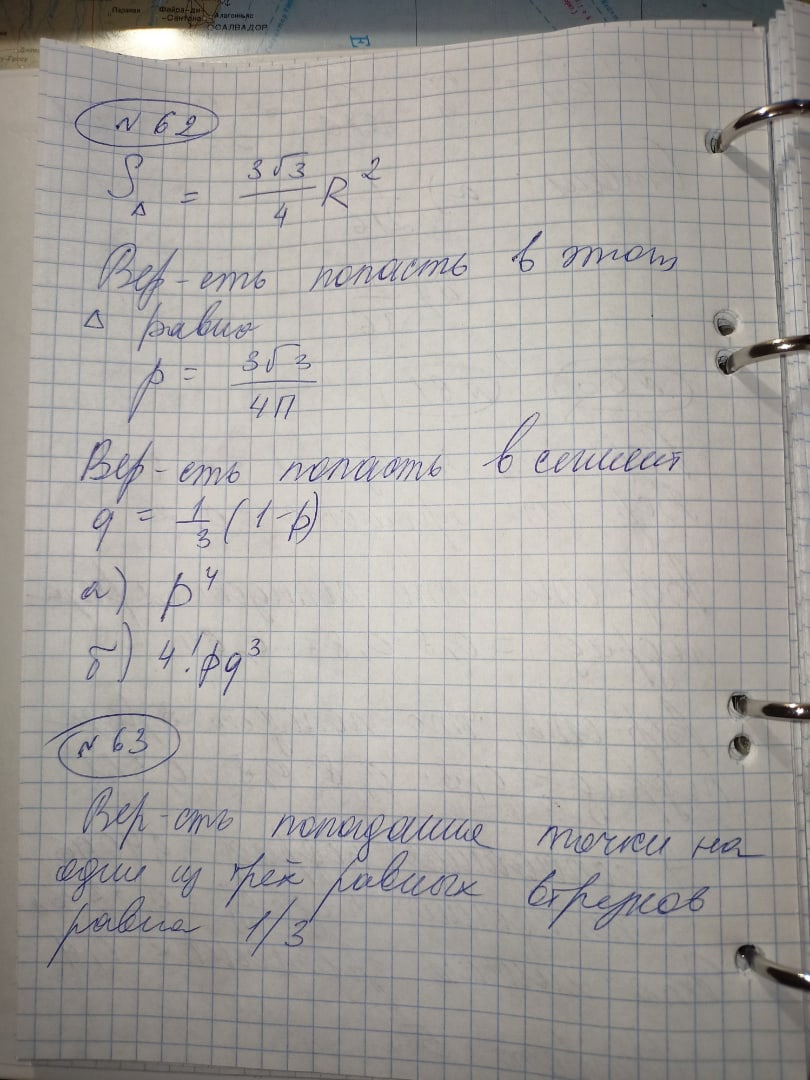 Параман
Файра-ди-
-Сантана
Алагоиньяс
САЛВАДОР
№ 62
S△ = 3√3/4 R²
Вер-сть попасть в этот
△ равна
p = 3√3/4π
Вер-сть попасть в сегмент
q = 1/3 (1-p)
а) p⁴
б) 4! pq³
№ 63
Вер-сть попадания точки на
один из трёх равных отрезков
равна 1/3